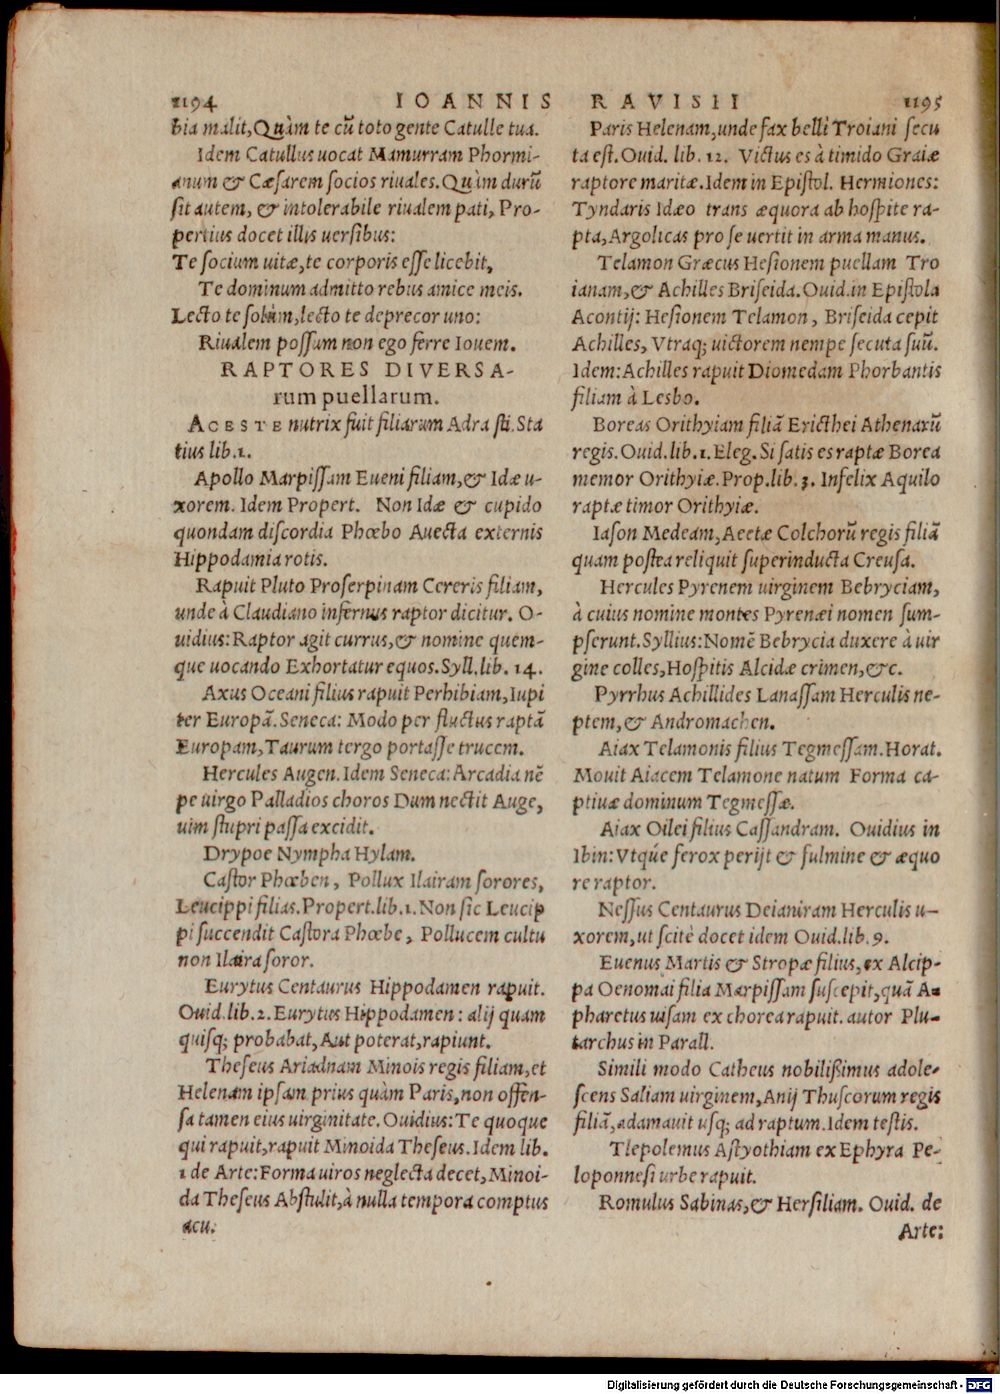 1194 IOANNIS RAVISII 1195
bia malit, Quàm te cũ toto gente Catulle tua.
Idem Catullus uocat Mamurram Phormi-
anum & Cæsarem socios riuales. Quàm durũ
sit autem, & intolerabile riualem pati, Pro-
pertius docet illis uersibus:
Te socium uitæ, te corporis esse licebit,
Te dominum admitto rebus amice meis.
Lecto te solùm, lecto te deprecor uno:
Riualem possum non ego ferre Iouem.
RAPTORES DIVERSA-
rum puellarum.
ACESTE nutrix fuit filiarum Adrasti. Sta
tius lib. 1.
Apollo Marpissam Eueni filiam, & Idæ u-
xorem. Idem Propert. Non Idæ & cupido
quondam discordia Phœbo Auecta externis
Hippodamia rotis.
Rapuit Pluto Proserpinam Cereris filiam,
unde à Claudiano infernus raptor dicitur. O-
uidius: Raptor agit currus, & nomine quem-
que uocando Exhortatur equos. Syll. lib. 14.
Axus Oceani filius rapuit Perhibiam, Iupi
ter Europã. Seneca: Modo per fluctus raptã
Europam, Taurum tergo portasse trucem.
Hercules Augen. Idem Seneca: Arcadia nẽ
pe uirgo Palladios choros Dum nectit Auge,
uim stupri passa excidit.
Drypoe Nympha Hylam.
Castor Phœben, Pollux Ilairam sorores,
Leucippi filias. Propert. lib. 1. Non sic Leucip
pi succendit Castora Phœbe, Pollucem cultu
non Ilaira soror.
Eurytus Centaurus Hippodamen rapuit.
Ouid. lib. 2. Eurytus Hippodamen: alij quam
quisq; probabat, Aut poterat, rapiunt.
Theseus Ariadnam Minois regis filiam, et
Helenam ipsam prius quàm Paris, non offen-
sa tamen eius uirginitate. Ouidius: Te quoque
qui rapuit, rapuit Minoida Theseus. Idem lib.
1 de Arte: Forma uiros neglecta decet, Minoi-
da Theseus Abstulit, à nulla tempora comptus
acu.
Paris Helenam, unde fax belli Troiani secu
ta est. Ouid. lib. 12. Victus es à timido Graiæ
raptore maritæ. Idem in Epistol. Hermiones:
Tyndaris Idæo trans æquora ab hospite ra-
pta, Argolicas pro se uertit in arma manus.
Telamon Græcus Hesionem puellam Tro
ianam, & Achilles Briseida. Ouid. in Epistola
Acontij: Hesionem Telamon, Briseida cepit
Achilles, Vtraq; uictorem nempe secuta suũ.
Idem: Achilles rapuit Diomedam Phorbantis
filiam à Lesbo.
Boreas Orithyiam filiã Ericthei Athenarũ
regis. Ouid. lib. 1. Eleg. Si satis es raptæ Borea
memor Orithyiæ. Prop. lib. 3. Infelix Aquilo
raptæ timor Orithyiæ.
Iason Medeam, Aeetæ Colchorũ regis filiã
quam postea reliquit superinducta Creusa.
Hercules Pyrenem uirginem Bebryciam,
à cuius nomine montes Pyrenæi nomen sum-
pserunt. Syllius: Nomẽ Bebrycia duxere à uir
gine colles, Hospitis Alcidæ crimen, &c.
Pyrrhus Achillides Lanassam Herculis ne-
ptem, & Andromachen.
Aiax Telamonis filius Tegmessam. Horat.
Mouit Aiacem Telamone natum Forma ca-
ptiuæ dominum Tegmessæ.
Aiax Oilei filius Cassandram. Ouidius in
Ibin: Vtqúe ferox perijt & fulmine & æquo
re raptor.
Nessus Centaurus Deianiram Herculis u-
xorem, ut scitè docet idem Ouid. lib. 9.
Euenus Martis & Stropæ filius, ex Alcip-
pa Oenomai filia Marpissam suscepit, quã A-
pharetus uisam ex chorea rapuit. autor Plu-
tarchus in Parall.
Simili modo Catheus nobilißimus adole-
scens Saliam uirginem, Anij Thuscorum regis
filiã, adamauit usq; ad raptum. Idem testis.
Tlepolemus Astyothiam ex Ephyra Pe-
loponnesi urbe rapuit.
Romulus Sabinas, & Hersiliam. Ouid. de
Arte:
Digitalisierung gefördert durch die Deutsche Forschungsgemeinschaft - DFG